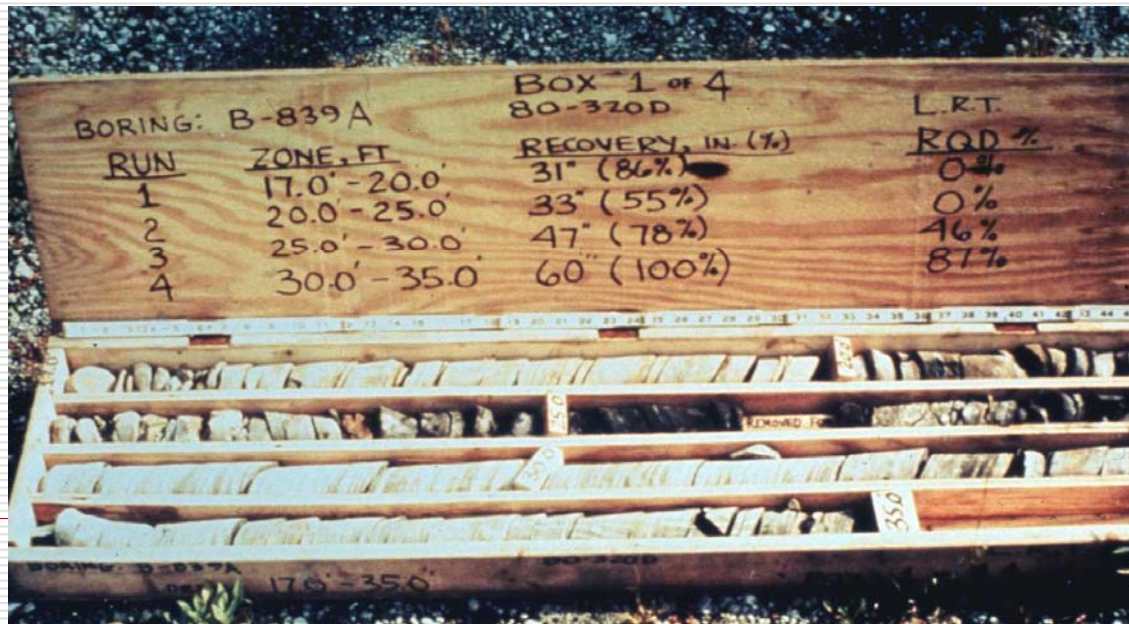 BOX 1 OF 4
BORING: B-839A 80-320D L.R.T.
RUN ZONE, FT RECOVERY, IN. (%) RQD %
1 17.0' - 20.0' 31" (86%) 0%
2 20.0' - 25.0' 33" (55%) 0%
3 25.0' - 30.0' 47" (78%) 46%
4 30.0' - 35.0' 60" (100%) 87%
20.0
25.0
REMOVED FO
30.0
35.0
BORING: B-839A 80-320D
17.0' - 35.0'